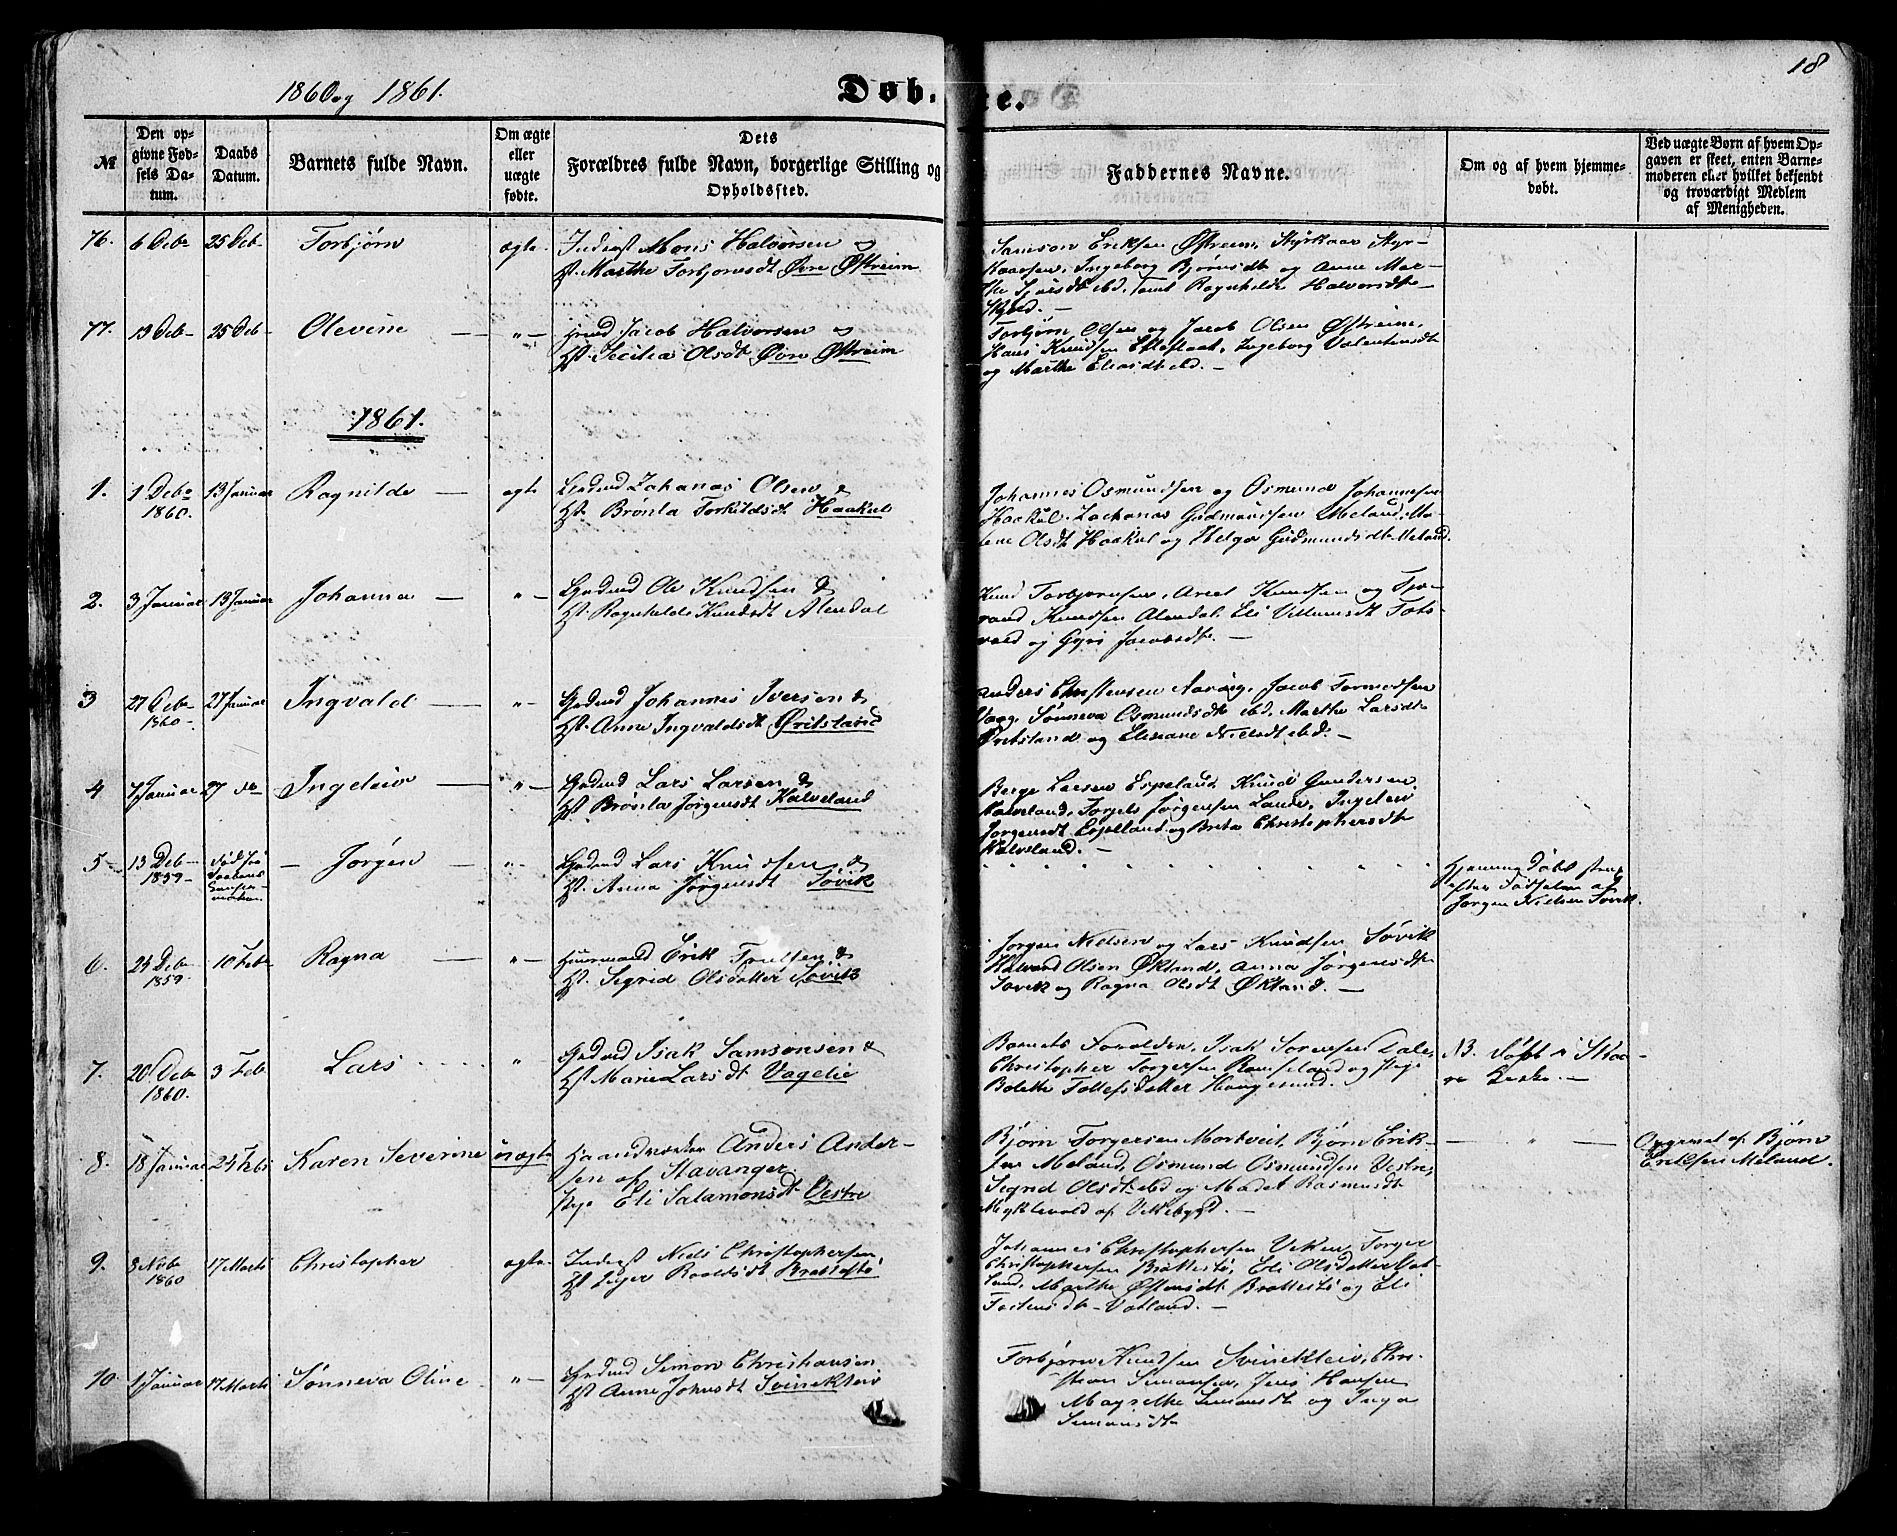 1860 og 1861.
Døb.
te.
18
№
Den op-
givne Fød-
sels Da-
tum.
Daabs
Datum.
Barnets fulde Navn.
Om ægte
eller
uægte
fødte.
Dets
Forældres fulde Navn, borgerlige Stilling og
Opholdssted.
Faddernes Navne.
Om og af hvem hjemme-
døbt.
Ved uægte Børn af hvem Op-
gaven er skeet, enten Barne-
moderen eller hvilket bekjendt
og troværdigt Medlem
af Menigheden.
76. 6 Debr 25 Deb Torbjørn ægte Inderst Mons Halvorsen og
H. Marthe Torbjørnsdt Øvre Østreim
Samson Eriksen Østreim, Styrkaar Styr-
kaarsen, Ingeborg Bjørnsdt og Anne Mar-
the ibd, samt Ragnhilde Halvorsdt

77. 13 Deb 25 Deb Olevine — " — Jacob Halvorsen og
H. Secilia Olsdt Øvre Østreim
Torbjørn Olsen og Jacob Olsen Østreim,
Hans Knudsen, Ingeborg Valentinsdt
og Marthe Eliasdt ibd. —
1861.
1. 1 Debr 13 Januar Ragnilde — ægte Gmd Zahanas Olsen &
1860. H. Brønla Torkildsdt Haakul
Johannes Osmundsen og Osmund Johannesen
Haakul, Zacharias Gudmundsen Meland, Ma-
lene Olsdt Haakul og Helga Gudmundsdt Meland.
2. 3 Januar 13 Januar Johanna — " — Ole Knudsen &
H. Ragnhilde Knudsdt Alendal
Knud Torbjørnsen, Knudsen og
Knudsen Alendal, Eli Villumsdt
og Jacobsdt. —
3 27 Deb 27 Januar Ingvald — " — Johannes Iversen &
1860 — H. Anne Ingvaldsdt Qvitsland
Anders Christensen Aarvig, Jacob Tormodsen
Vaag, Sønneva Osmundsdt ibd, Marthe Larsdt
og Nielsdt ibd. —
4 7 Januar 27 Ingeleiv — " — Lars Larsen &
H. Brønla Jørgensdt Kalveland
Berge Larsen Espeland, Knud Gundersen
Kalveland, Torgels Jørgensen Lande, Ingeleiv
Jørgensdt Espeland og Breta Christophersdt
Kalveland. —
5 — 13 Deb — — Jørgen — " — Lars Knudsen &
1859 — H. Anna Jørgensdt Søvik
Hjemmedøbt strax
efter Fødselen af
Jørgen Nielsen Søvik.
6. 24 Deb 10 Febr Ragna — " — Huusmand Erik &
1859 H. Segrid Olsdatter Søvik
Jørgen Nielsen og Lars Knudsen Søvik
Halvard Olsen Økland, Anna Jørgensdt
Søvik og Ragna Olsdt Økland. —
7. 20 Deb 3 Feb Lars " Isak Samsonsen &
1860. H. Marie Larsdt Vagelie
Barnets Forældre, Isak Sørensen Dale,
Christopher Torgersen Ramseland og Pige
Bolette Tollefsdatter Haugesund. —
NB. Døbt i Skaa-
re Kirke. —
8. 18 Januar 24 Febr Karen Severine uægte Haandværker Anders Ander-
sen af Stavanger.
Pige Eli Salamonsdt Vestre
Bjørn Torgersen Mortveit, Bjørn Erik-
sen Meland, Osmund Osmundsen Vestre,
Segrid Olsdt ibd og Madel Rasmusdt
Myklevold af Vikebygd. —
— " —
Opgivet af Bjørn
Eriksen Meland.
9. 3 Novbr 17 Marts Christopher ægte Inderst Niels Christophersen,
1860 H. Roaldsdt Brattestø
Johannes Christophersen Viken, Torger
Christophersen Brattestø, Eli Olsdatter Vat-
land, Marthe Østensdt Brattestø og Eli
Vatland. —
10 1 Januar 17 Marts Sønneva Oline — " — Simon Christiansen
H. Anne Johnsdt Svinekleiv
Torbjørn Knudsen Svinekleiv, Chri-
stian Simonsen, Jens Hansen
Magrethe Simonsdt og Inga
Simonsdt